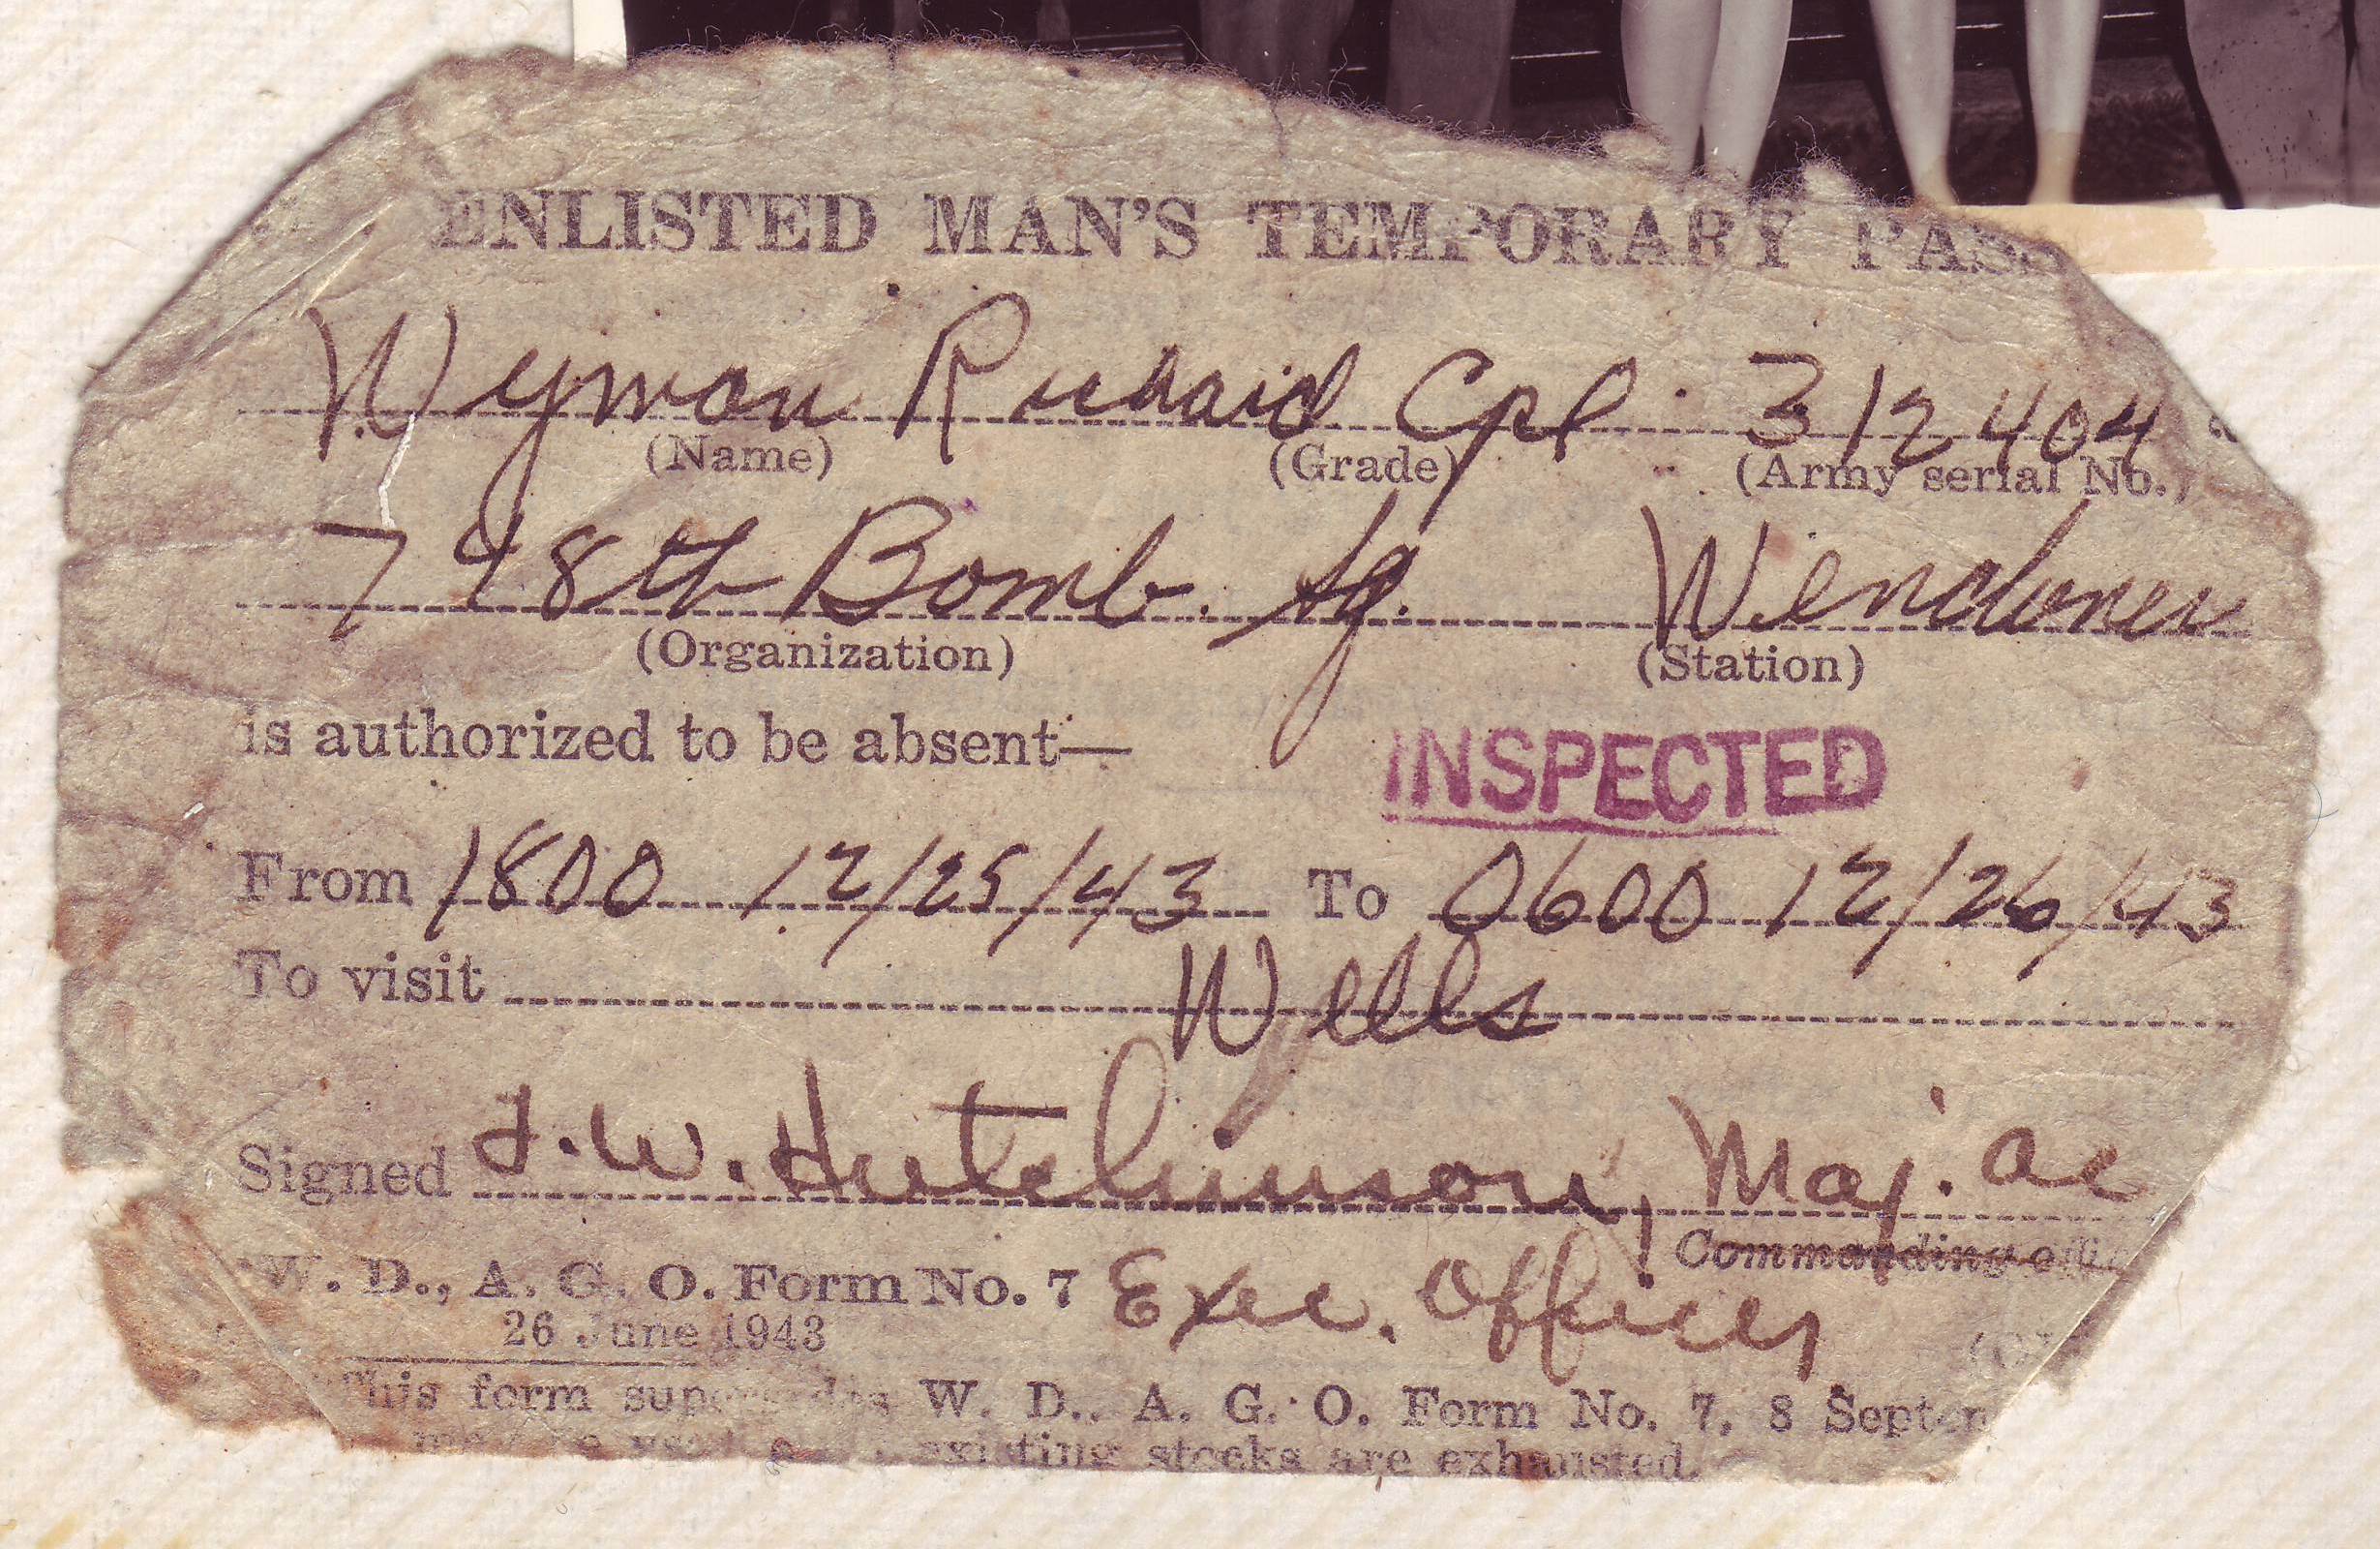 ENLISTED MAN'S TEMPORARY PASS
Wyman Richard Cpl. 312404
(Name) (Grade) (Army serial No.)
798th Bomb. Sq. Wendover
(Organization) (Station)
is authorized to be absent—
INSPECTED
From 1800 12/25/43 To 0600 12/26/43
To visit Wells
Signed J.W. Hutchinson, Maj. ac
Commanding
W. D., A. G. O. Form No. 7 Exec. Officer
26 June 1943
This form supersedes W. D., A. G. O. Form No. 7, 8 Septem
existing stocks are exhausted.